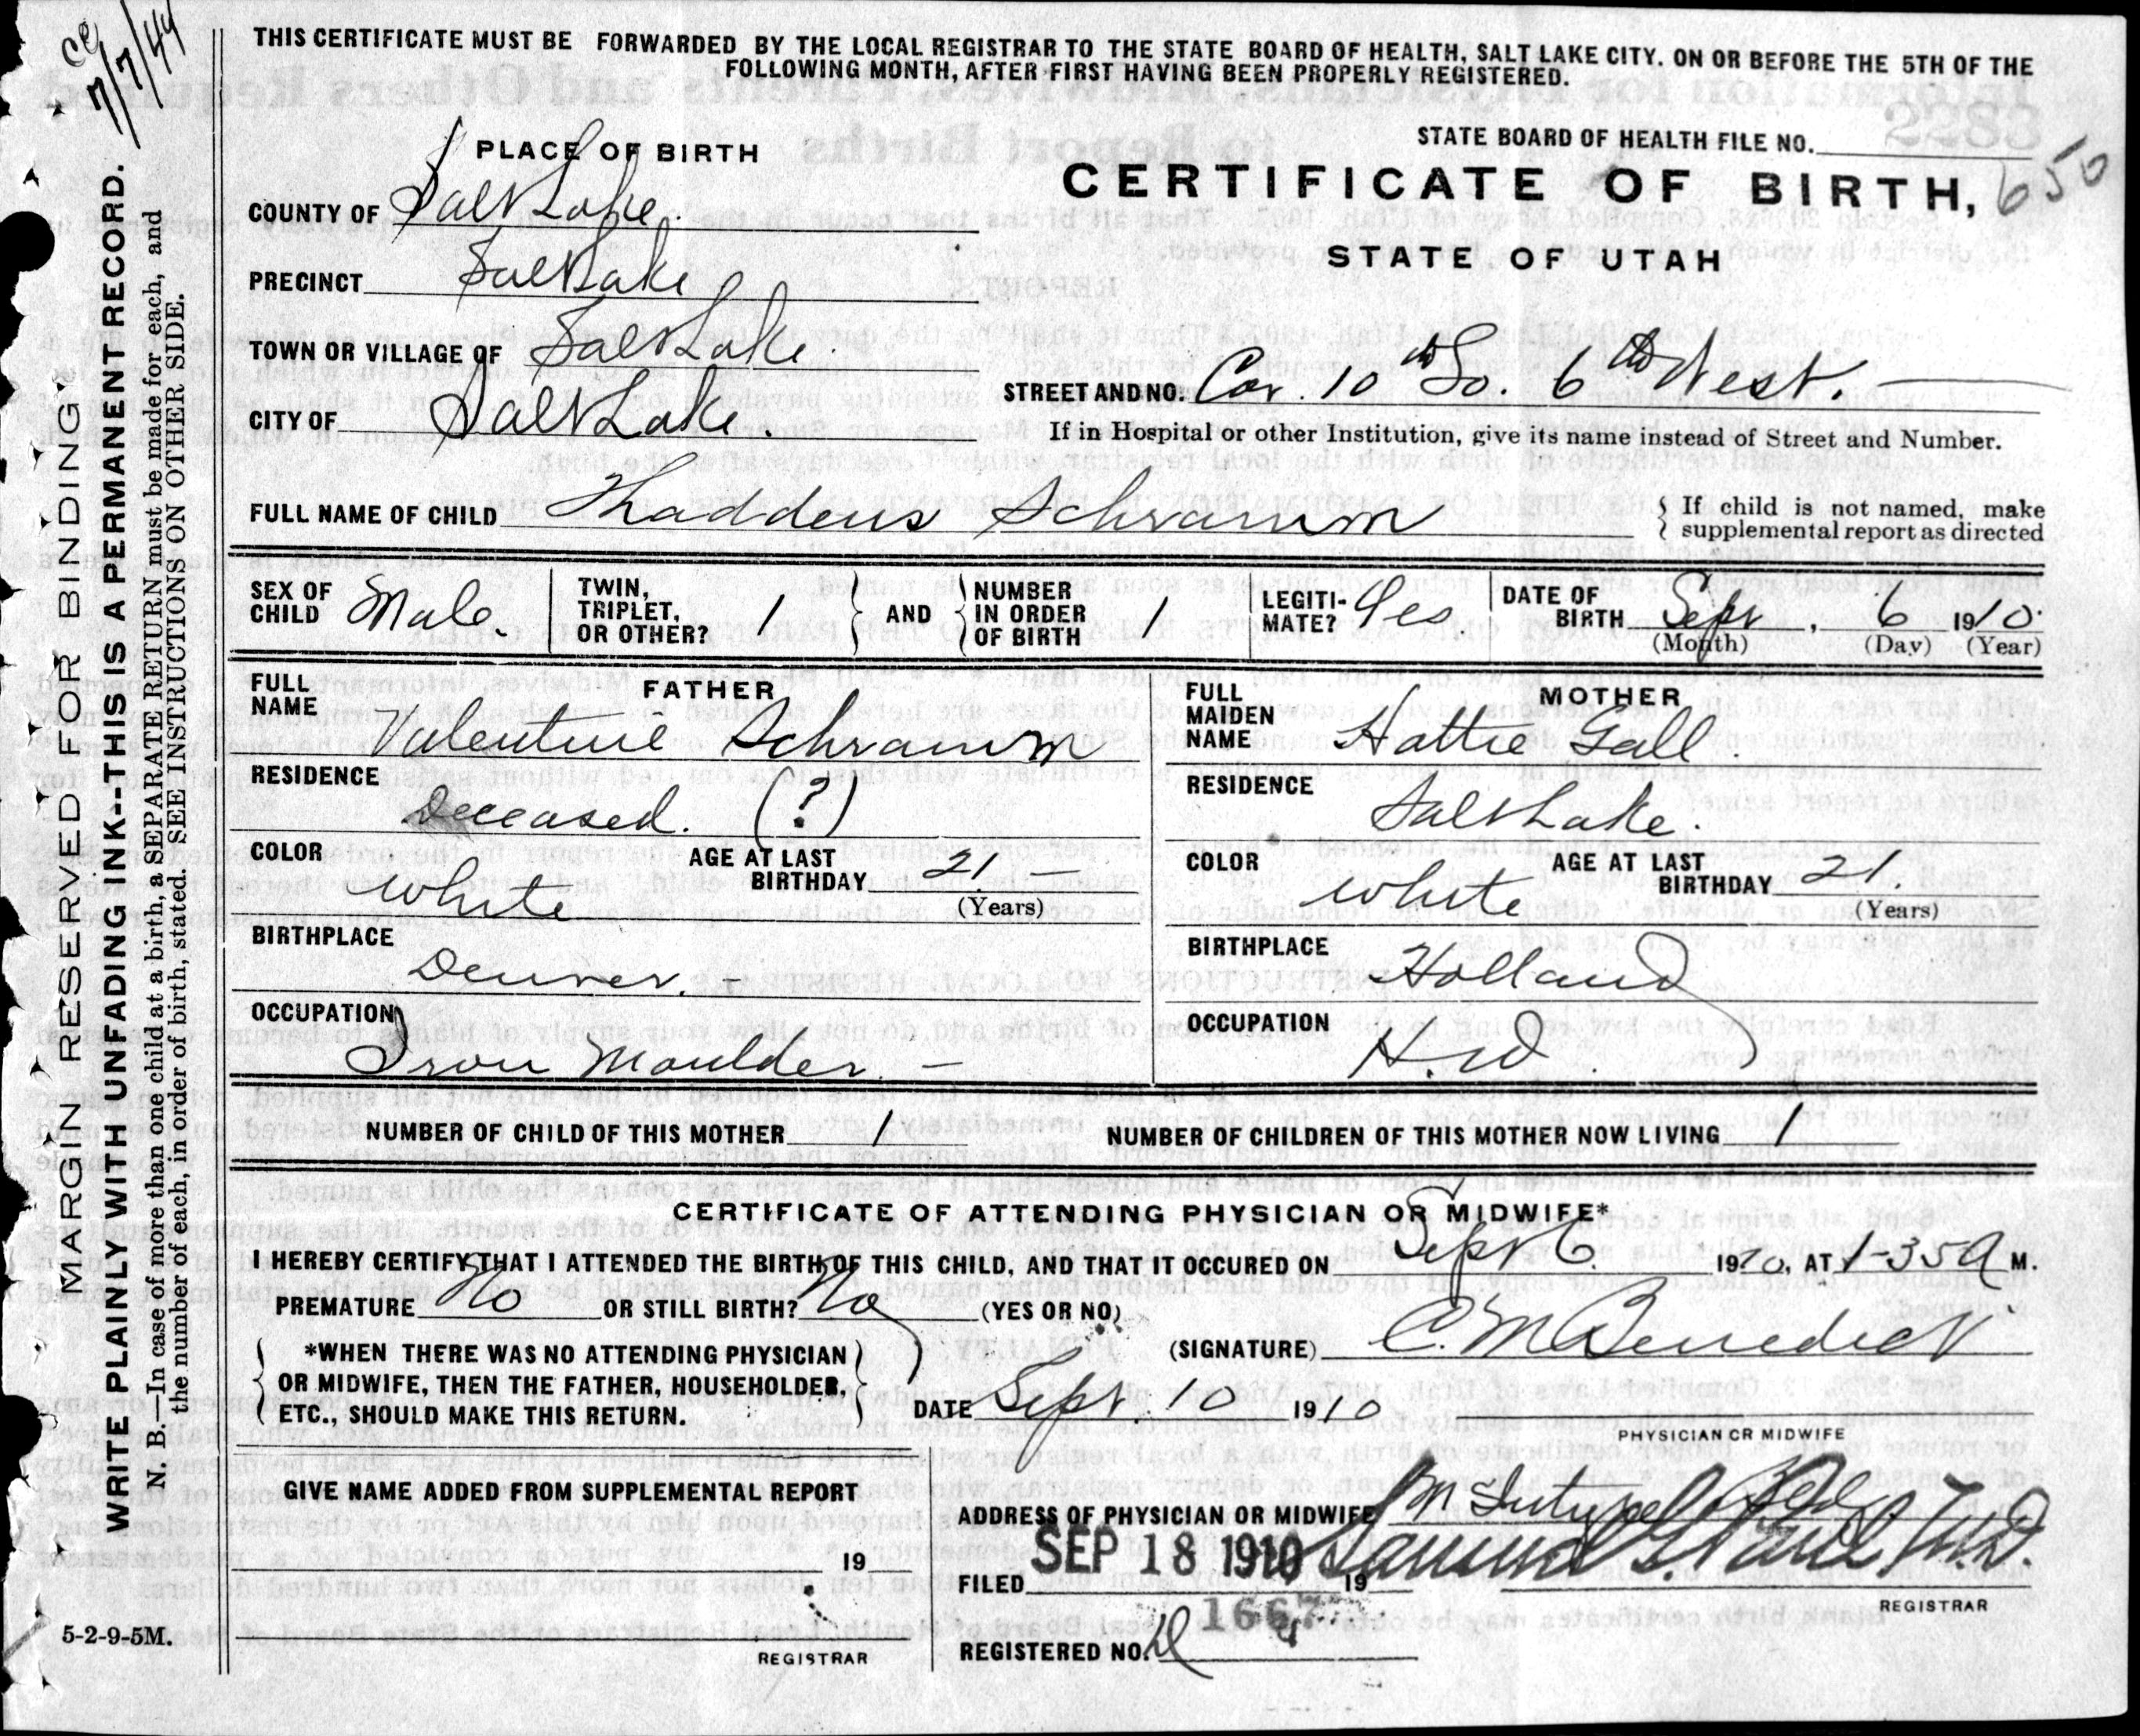 ce
7/7/44
THIS CERTIFICATE MUST BE FORWARDED BY THE LOCAL REGISTRAR TO THE STATE BOARD OF HEALTH, SALT LAKE CITY, ON OR BEFORE THE 5TH OF THE
FOLLOWING MONTH, AFTER FIRST HAVING BEEN PROPERLY REGISTERED.
MARGIN RESERVED FOR BINDING
WRITE PLAINLY WITH UNFADING INK--THIS IS A PERMANENT RECORD.
N. B.—In case of more than one child at a birth, a SEPARATE RETURN must be made for each, and
the number of each, in order of birth, stated. SEE INSTRUCTIONS ON OTHER SIDE.
PLACE OF BIRTH
STATE BOARD OF HEALTH FILE NO.
2283
650
CERTIFICATE OF BIRTH,
STATE OF UTAH
COUNTY OF Salt Lake.
PRECINCT Salt Lake
TOWN OR VILLAGE OF Salt Lake.
CITY OF Salt Lake.
STREET AND NO. Cor. 10th So. 6th West.
If in Hospital or other Institution, give its name instead of Street and Number.
FULL NAME OF CHILD Thaddeus Schramm
If child is not named, make
supplemental report as directed
SEX OF CHILD Male.
TWIN, TRIPLET, OR OTHER? 1
AND NUMBER IN ORDER OF BIRTH 1
LEGITIMATE? Yes.
DATE OF BIRTH Sept, 6 1910.
(Month) (Day) (Year)
FATHER
FULL NAME Valentine Schramm
RESIDENCE Deceased. (?)
COLOR White
AGE AT LAST BIRTHDAY 21 —
(Years)
BIRTHPLACE Denver. —
OCCUPATION Iron Moulder. —
MOTHER
FULL MAIDEN NAME Hattie Gall
RESIDENCE Salt Lake.
COLOR White
AGE AT LAST BIRTHDAY 21.
(Years)
BIRTHPLACE Holland
OCCUPATION H.W.
NUMBER OF CHILD OF THIS MOTHER 1
NUMBER OF CHILDREN OF THIS MOTHER NOW LIVING 1
CERTIFICATE OF ATTENDING PHYSICIAN OR MIDWIFE*
I HEREBY CERTIFY THAT I ATTENDED THE BIRTH OF THIS CHILD, AND THAT IT OCCURED ON Sept 6. 1910, AT 1-35 A M.
PREMATURE No OR STILL BIRTH? No (YES OR NO)
*WHEN THERE WAS NO ATTENDING PHYSICIAN
OR MIDWIFE, THEN THE FATHER, HOUSEHOLDER,
ETC., SHOULD MAKE THIS RETURN.
(SIGNATURE) C. M. Benedict
DATE Sept. 10 1910
PHYSICIAN OR MIDWIFE
GIVE NAME ADDED FROM SUPPLEMENTAL REPORT
19
REGISTRAR
ADDRESS OF PHYSICIAN OR MIDWIFE
FILED SEP 18 1910 19
Samuel G. Paul M.D.
REGISTRAR
REGISTERED NO. 1667
5-2-9-5M.